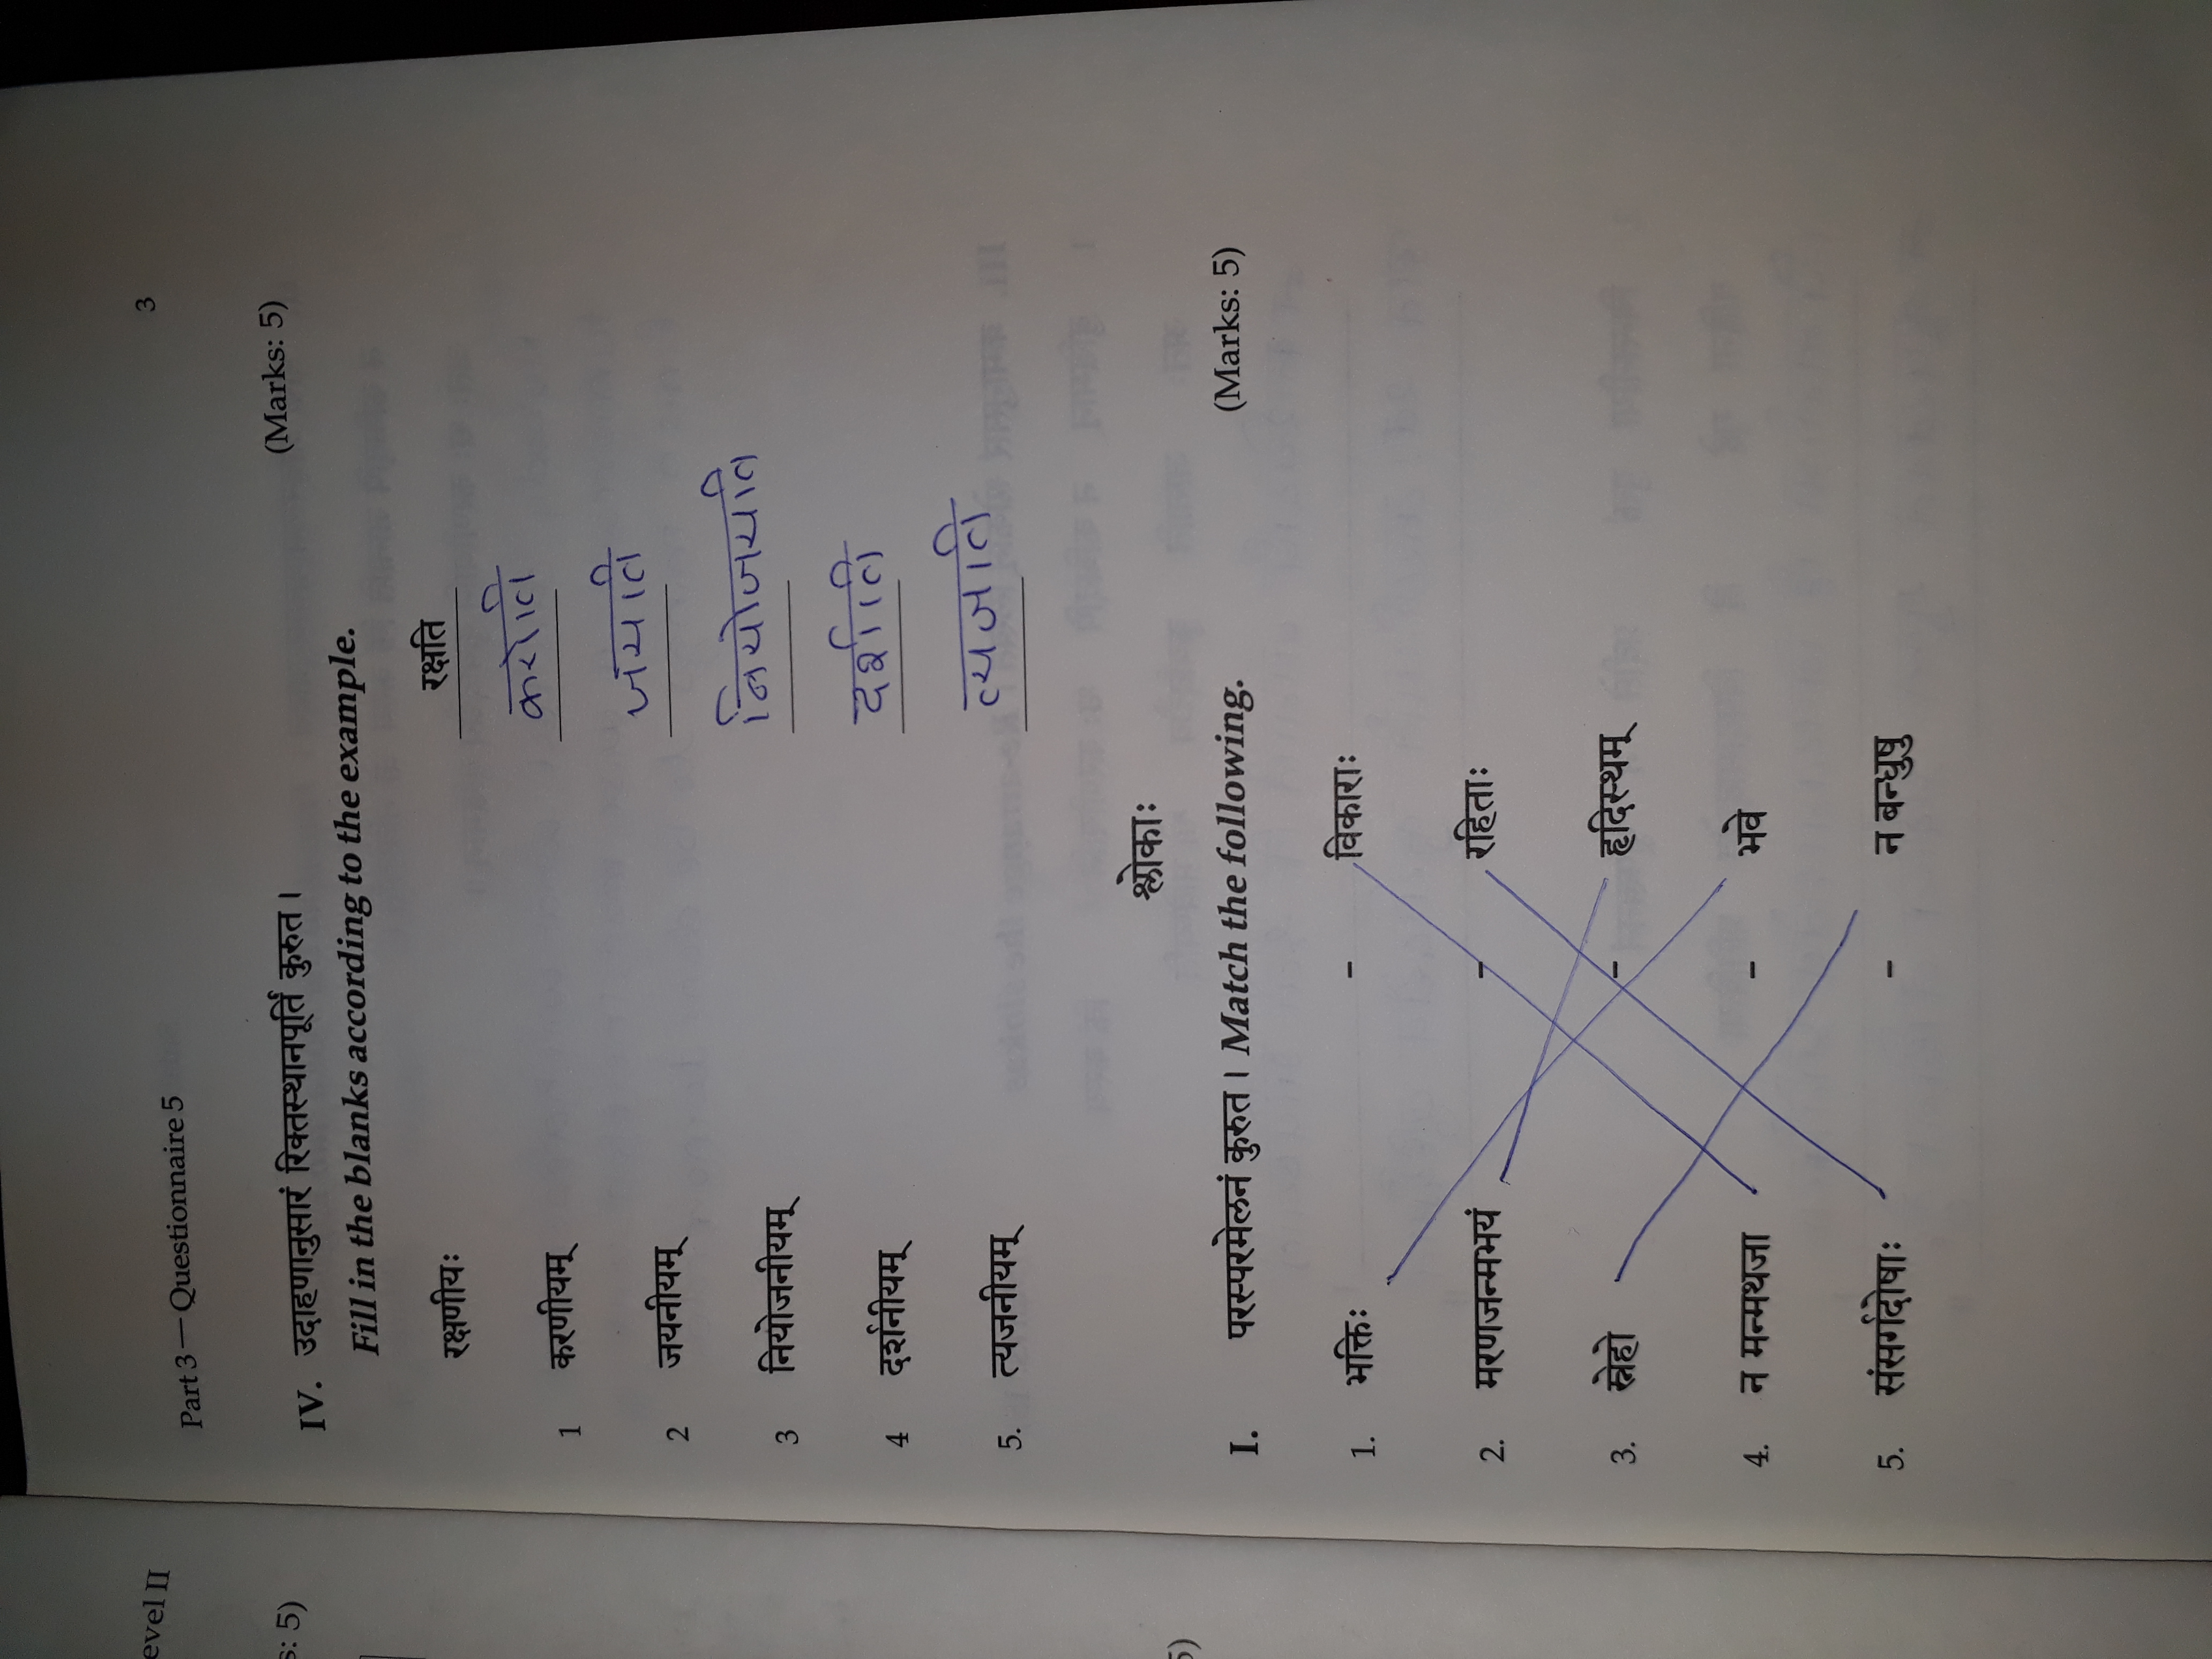 evel II
s: 5)
5)
Part 3 — Questionnaire 5
3
IV. उदाहणानुसारं रिक्तस्थानपूर्तिं कुरुत । (Marks: 5)
Fill in the blanks according to the example.
रक्षणीयः रक्षति
1 करणीयम् करोति
2 जयनीयम् जयति
3 नियोजनीयम् नियोजयति
4 दर्शनीयम् दर्शति
5. त्यजनीयम् त्यजति
श्लोकाः
I. परस्परमेलनं कुरुत । Match the following. (Marks: 5)
1. भक्तिः – विकाराः
2. मरणजन्मभयं – रहिताः
3. स्नेहो – हृदिस्थम्
4. न मन्मथजा – भवे
5. संसर्गदोषाः – न बन्धुषु